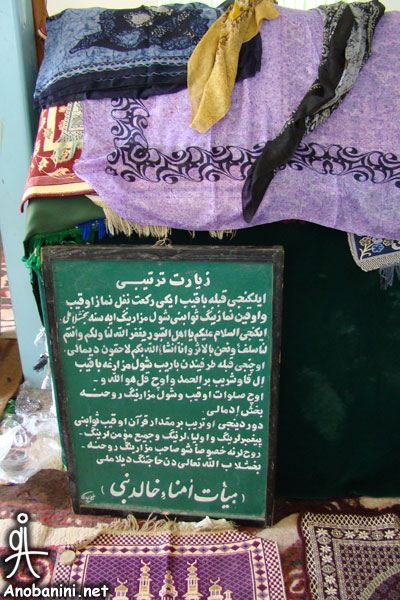 زیارت ترتیبی
ایلکنجی قبله باقیب ایکی رکعت نفل نماز اوقیب
واوقین نمازینگ ثوابنی شول مزارینگ ایه سنه
ایکنجی السلام علیکم یا اهل القبور یغفر الله لنا ولکم وانتم
لنا سلف ونحن بالاثر وانا انشاءالله بکم لاحقون دیمالی.
اوچنجی قبله طرفیندن باریب شول مزارغه باقیب
ال قاوشیریب بر الحمد و اوچ قل هو الله و-
اوچ صلوات اوقیب و شول مزارینگ روحنه
بخش ادمالی.
دوردینجی اوتریب بر مقدار قرآن اوقیب ثوابنی
پیغمبرلرینگ و اولیالرنگ و جمیع مؤمن لرینگ-
روحلرنه خصوصاً شو صاحب مزارینگ روحنه-
بغشلاب الله تعالی دن حاجتنگ دیلاملی
( هیأت أمناء خالد نبی )
Anobanini.net